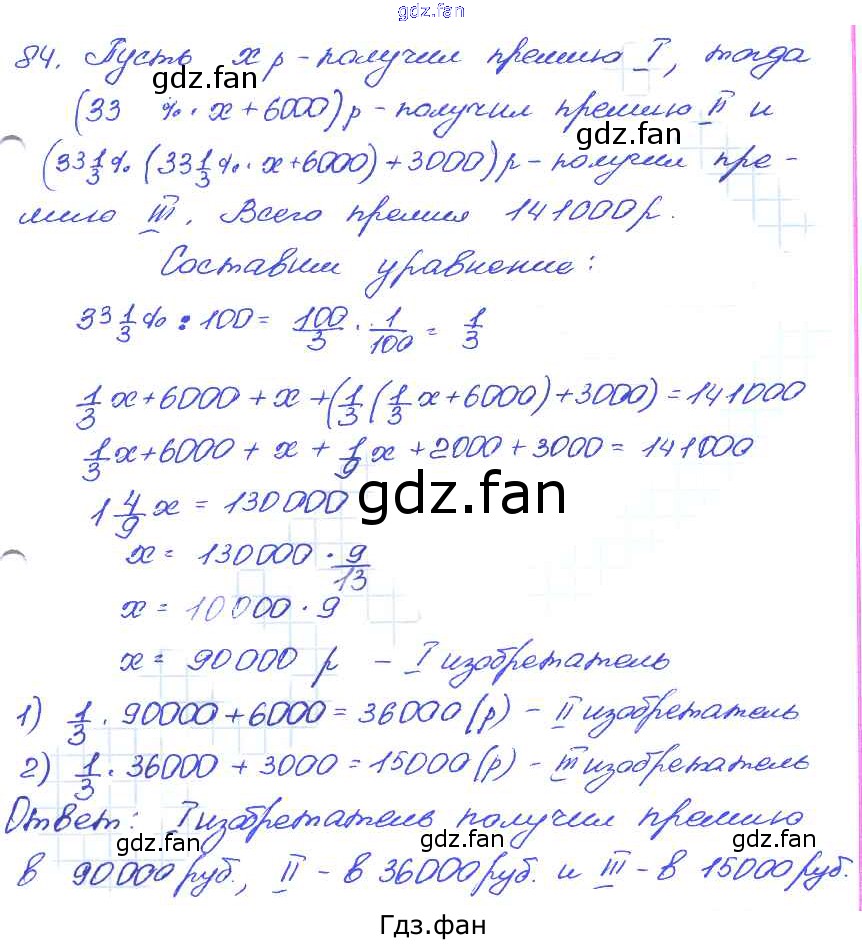 gdz.fan
84. Пусть x р - получил премию I, тогда
(33 %·x+6000) р - получил премию II и
(33 1/3% (33 1/3%·x+6000)+3000) р - получил пре-
мию III. Всего премия 141000 р.
Составим уравнение:
33 1/3% : 100 = 100/3 · 1/100 = 1/3
1/3 x+6000 + x + (1/3 (1/3 x+6000)+3000) = 141000
1/3 x+6000 + x + 1/9 x + 2000 + 3000 = 141000
1 4/9 x = 130000
x = 130000 · 9/13
x = 10000 · 9
x = 90000 р - I изобретатель
1) 1/3 · 90000 + 6000 = 36000 (р) - II изобретатель
2) 1/3 · 36000 + 3000 = 15000 (р) - III изобретатель
Ответ: I изобретатель получил премию
в 90000 руб., II - в 36000 руб. и III - в 15000 руб.
gdz.fan
gdz.fan
gdz.fan
gdz.fan
gdz.fan
gdz.fan
gdz.fan
Гдз.фан